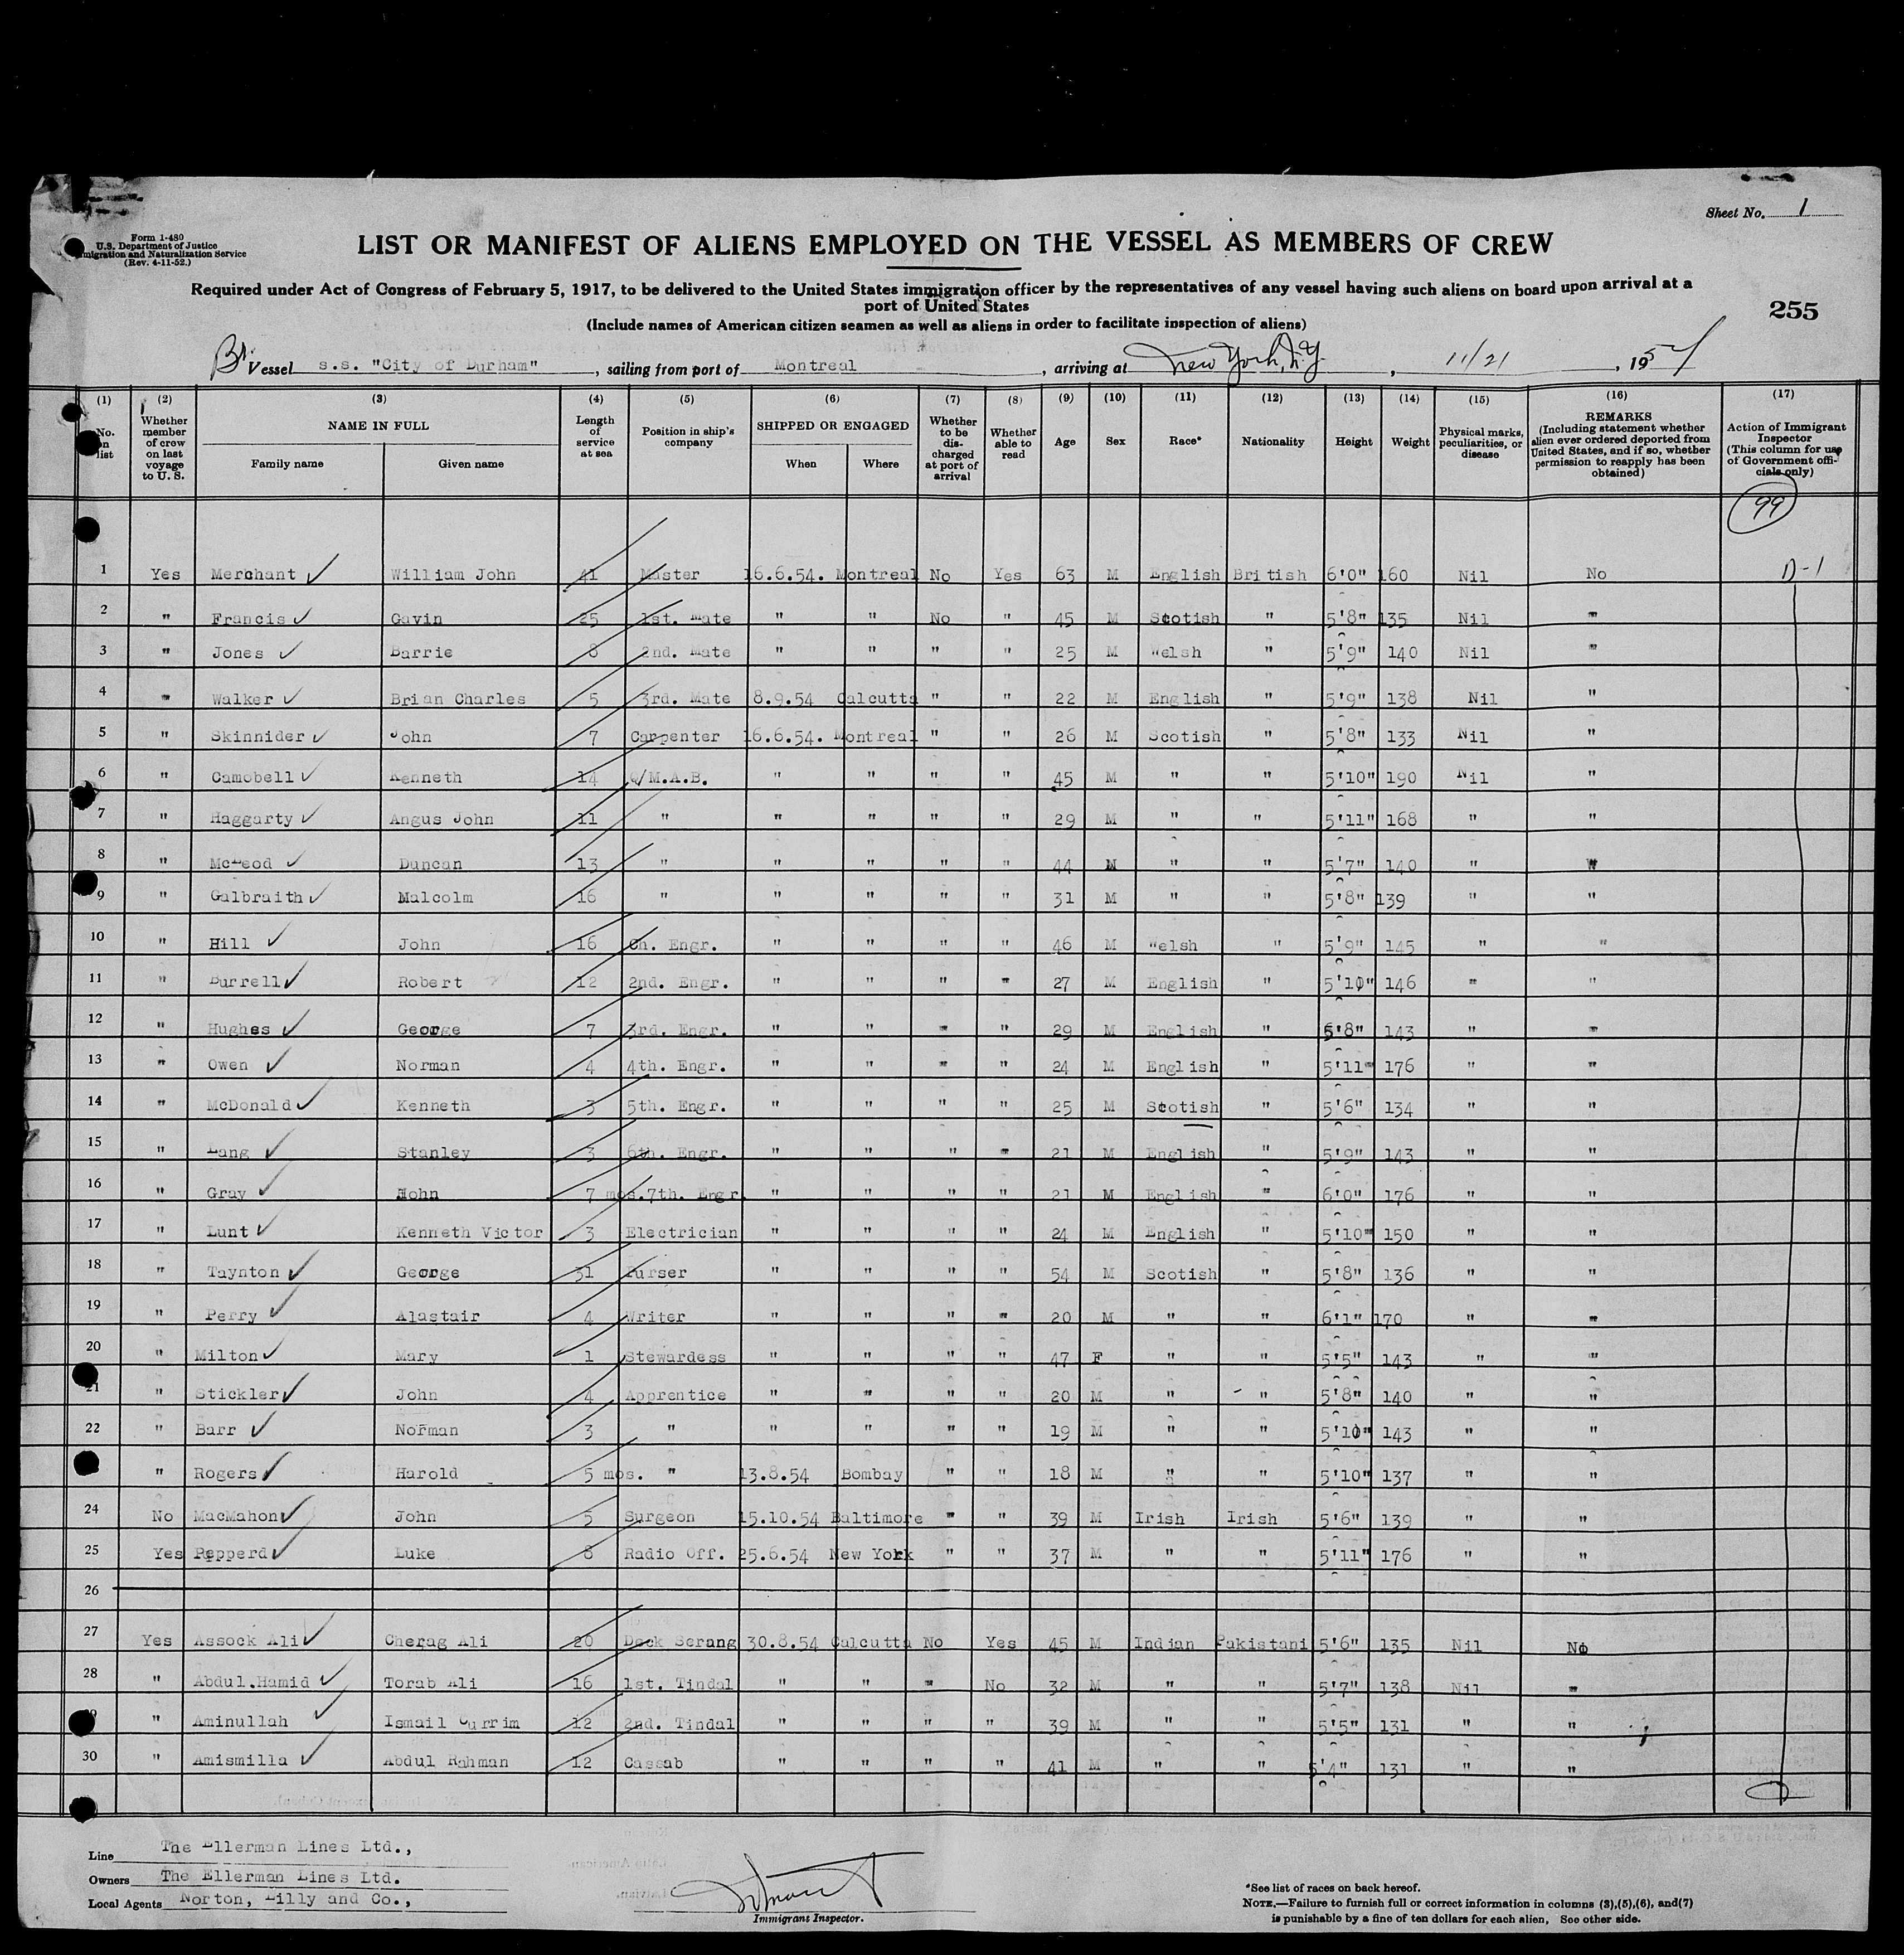 Sheet No. 1
Form I-480
U.S. Department of Justice
migration and Naturalization Service
(Rev. 4-11-52.)
LIST OR MANIFEST OF ALIENS EMPLOYED ON THE VESSEL AS MEMBERS OF CREW
Required under Act of Congress of February 5, 1917, to be delivered to the United States immigration officer by the representatives of any vessel having such aliens on board upon arrival at a
port of United States
(Include names of American citizen seamen as well as aliens in order to facilitate inspection of aliens)
255
Br. Vessel s.s. "City of Durham", sailing from port of Montreal, arriving at New York, N.Y., 11/21, 1954
(1) No. on list (2) Whether member of crow on last voyage to U. S. (3) NAME IN FULL Family name Given name (4) Length of service at sea (5) Position in ship's company (6) SHIPPED OR ENGAGED When Where (7) Whether to be discharged at port of arrival (8) Whether able to read (9) Age (10) Sex (11) Race* (12) Nationality (13) Height (14) Weight (15) Physical marks, peculiarities, or disease (16) REMARKS (Including statement whether alien ever ordered deported from United States, and if so, whether permission to reapply has been obtained) (17) Action of Immigrant Inspector (This column for use of Government officials only)
99
1 Yes Merchant William John 41 Master 16.6.54. Montreal No Yes 63 M English British 6'0" 160 Nil No D-1
2 " Francis Gavin 25 1st. Mate " " No " 45 M Scotish " 5'8" 135 Nil "
3 " Jones Barrie 8 2nd. Mate " " " " 25 M Welsh " 5'9" 140 Nil "
4 " Walker Brian Charles 5 3rd. Mate 8.9.54 Calcutta " " 22 M English " 5'9" 138 Nil "
5 " Skinnider John 7 Carpenter 16.6.54. Montreal " " 26 M Scotish " 5'8" 133 Nil "
6 " Camobell Kenneth 14 Q/M.A.B. " " " " 45 M " " 5'10" 190 Nil "
7 " Haggarty Angus John 11 " " " " " 29 M " " 5'11" 168 " "
8 " McLeod Duncan 13 " " " " " 44 M " " 5'7" 140 " "
9 " Galbraith Malcolm 16 " " " " " 31 M " " 5'8" 139 " "
10 " Hill John 16 Ch. Engr. " " " " 46 M Welsh " 5'9" 145 " "
11 " Burrell Robert 12 2nd. Engr. " " " " 27 M English " 5'10" 146 " "
12 " Hughes George 7 3rd. Engr. " " " " 29 M English " 5'8" 143 " "
13 " Owen Norman 4 4th. Engr. " " " " 24 M English " 5'11" 176 " "
14 " McDonald Kenneth 3 5th. Engr. " " " " 25 M Scotish " 5'6" 134 " "
15 " Lang Stanley 3 6th. Engr. " " " " 21 M English " 5'9" 143 " "
16 " Gray John 7 mos. 7th. Engr. " " " " 21 M English " 6'0" 176 " "
17 " Lunt Kenneth Victor 3 Electrician " " " " 24 M English " 5'10" 150 " "
18 " Taynton George 31 Purser " " " " 54 M Scotish " 5'8" 136 " "
19 " Perry Alastair 4 Writer " " " " 20 M " " 6'1" 170 " "
20 " Milton Mary 1 Stewardess " " " " 47 F " " 5'5" 143 " "
21 " Stickler John 4 Apprentice " " " " 20 M " " 5'8" 140 " "
22 " Barr Norman 3 " " " " " 19 M " " 5'10" 143 " "
" Rogers Harold 5 mos. " 13.8.54 Bombay " " 18 M " " 5'10" 137 " "
24 No MacMahon John 5 Surgeon 15.10.54 Baltimore " " 39 M Irish Irish 5'6" 139 " "
25 Yes Pepperd Luke 8 Radio Off. 25.6.54 New York " " 37 M " " 5'11" 176 " "
26
27 Yes Assock Ali Cherag Ali 20 Deck Serang 30.8.54 Calcutta No Yes 45 M Indian Pakistani 5'6" 135 Nil No
28 " Abdul.Hamid Torab Ali 16 1st. Tindal " " " No 32 M " " 5'7" 138 Nil "
29 " Aminullah Ismail Currim 12 2nd. Tindal " " " " 39 M " " 5'5" 131 " "
30 " Amismilla Abdul Rahman 12 Cassab " " " " 41 M " " 5'4" 131 " "
Line The Ellerman Lines Ltd.,
Owners The Ellerman Lines Ltd.
Local Agents Norton, Lilly and Co.,
Immigrant Inspector.
*See list of races on back hereof.
NOTE.—Failure to furnish full or correct information in columns (3),(5),(6), and(7)
is punishable by a fine of ten dollars for each alien, See other side.